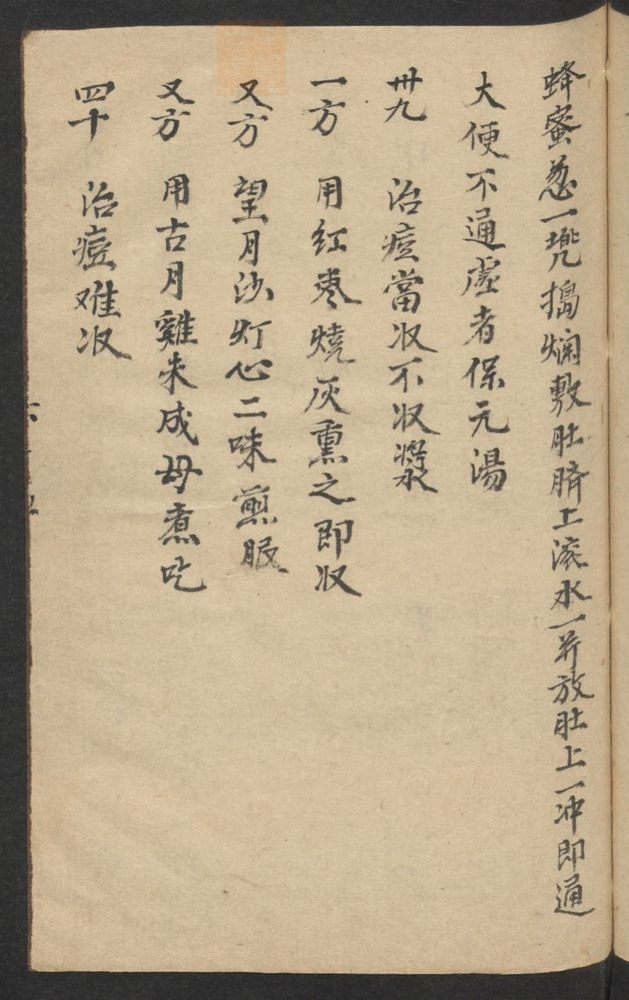 蜂蜜葱一兜搗爛敷肚臍上滚水一并放肚上一冲即通
大便不通虛者保元湯
卅九 治痘當收不收漿
一方 用红枣燒灰熏之即收
又方 望月沙灯心二味煎服
又方 用古月雞未成母煮吃
四十 治痘难收